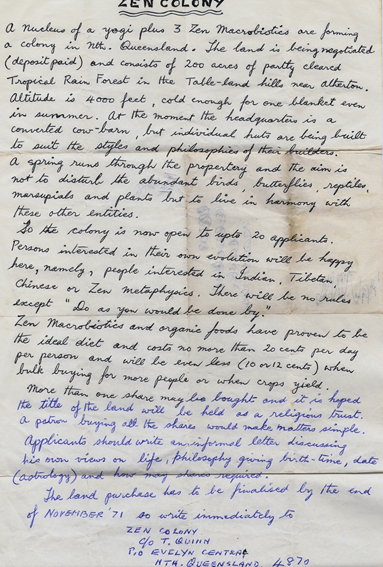 ZEN COLONY
A nucleus of a yogi plus 3 Zen Macrobiotics are forming
a colony in Nth. Queensland. The land is being negotiated
(deposit paid) and consists of 200 acres of partly cleared
Tropical Rain Forest in the Table-land hills near Atherton.
Altitude is 4000 feet, cold enough for one blanket even
in summer. At the moment the headquarters is a
converted cow-barn, but individual huts are being built
to suit the styles and philosophies of their builders.
A spring runs through the propertery and the aim is
not to disturb the abundant birds, butterflies, reptiles,
marsupials and plants but to live in harmony with
these other entities.
So the colony is now open to upto 20 applicants.
Persons interested in their own evolution will be happy
here, namely, people interested in Indian, Tibetan,
Chinese or Zen Metaphysics. There will be no rules
except "Do as you would be done by."
Zen Macrobiotics and organic foods have proven to be
the ideal diet and costs no more than 20 cents per day
per person and will be even less (10 or 12 cents) when
bulk buying for more people or when crops yield.
More than one share may be bought and it is hoped
the title of the land will be held as a religious trust.
A patron buying all the shares would make matters simple.
Applicants should write an informal letter discussing
his own views on life, philosophy giving birth-time, date
(astrology) and how many shares required.
The land purchase has to be finalised by the end
of NOVEMBER '71 so write immediately to
ZEN COLONY
C/o T. QUINN
P.O EVELYN CENTRAL
NTH. QUEENSLAND 4870